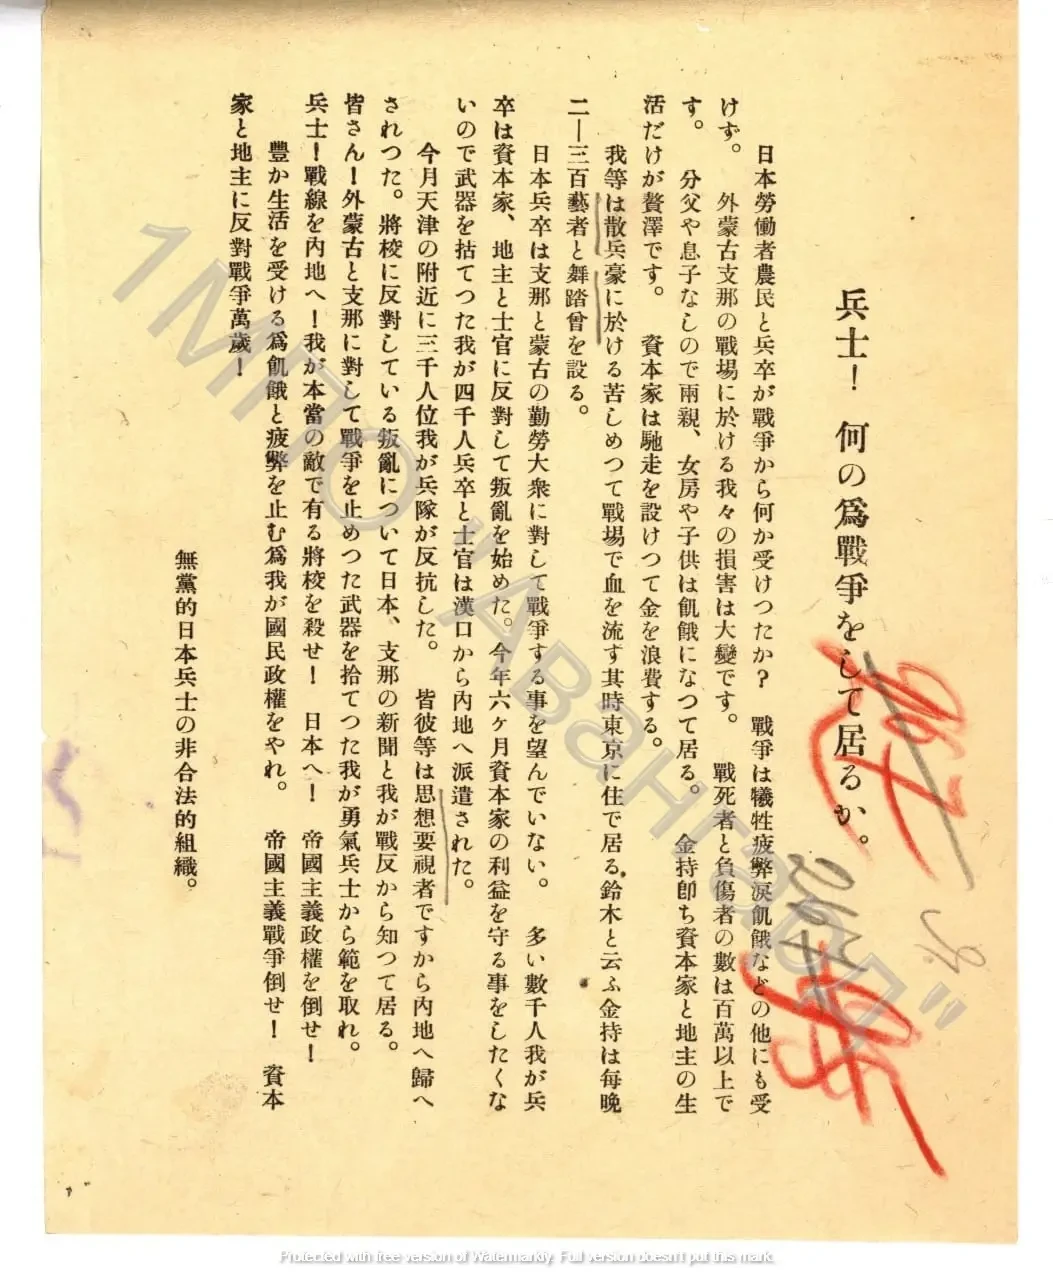 兵士！ 何の爲戰爭をして居るか。
日本勞働者農民と兵卒が戰爭から何か受けつたか？ 戰爭は犧牲疲弊淚飢餓などの他にも受
けず。 外蒙古支那の戰場に於ける我々の損害は大變です。 戰死者と負傷者の數は百萬以上で
す。 分父や息子なしので兩親、女房や子供は飢餓になつて居る。 金持卽ち資本家と地主の生
活だけが贅澤です。 資本家は馳走を設けつて金を浪費する。
我等は散兵豪に於ける苦しめつて戰場で血を流す其時東京に住で居る鈴木と云ふ金持は每晩
二—三百藝者と舞踏曾を設る。
日本兵卒は支那と蒙古の勤勞大衆に對して戰爭する事を望んでいない。 多い數千人我が兵
卒は資本家、地主と士官に反對して叛亂を始めた。今年六ケ月資本家の利益を守る事をしたくな
いので武器を拈てつた我が四千人兵卒と士官は漢口から內地へ派遣された。
今月天津の附近に三千人位我が兵隊が反抗した。 皆彼等は思想要視者ですから內地へ歸へ
されつた。將校に反對している叛亂について日本、支那の新聞と我が戰反から知つて居る。
皆さん！外蒙古と支那に對して戰爭を止めつた武器を拾てつた我が勇氣兵士から範を取れ。
兵士！戰線を內地へ！我が本當の敵で有る將校を殺せ！ 日本へ！ 帝國主義政權を倒せ！
豐か生活を受ける爲飢餓と疲弊を止む爲我が國民政權をやれ。 帝國主義戰爭倒せ！ 資本
家と地主に反對戰爭萬歲！
無黨的日本兵士の非合法的組織。
1МПО "Авангард"
Protected with free version of Watermarkly. Full version doesn't put this mark.